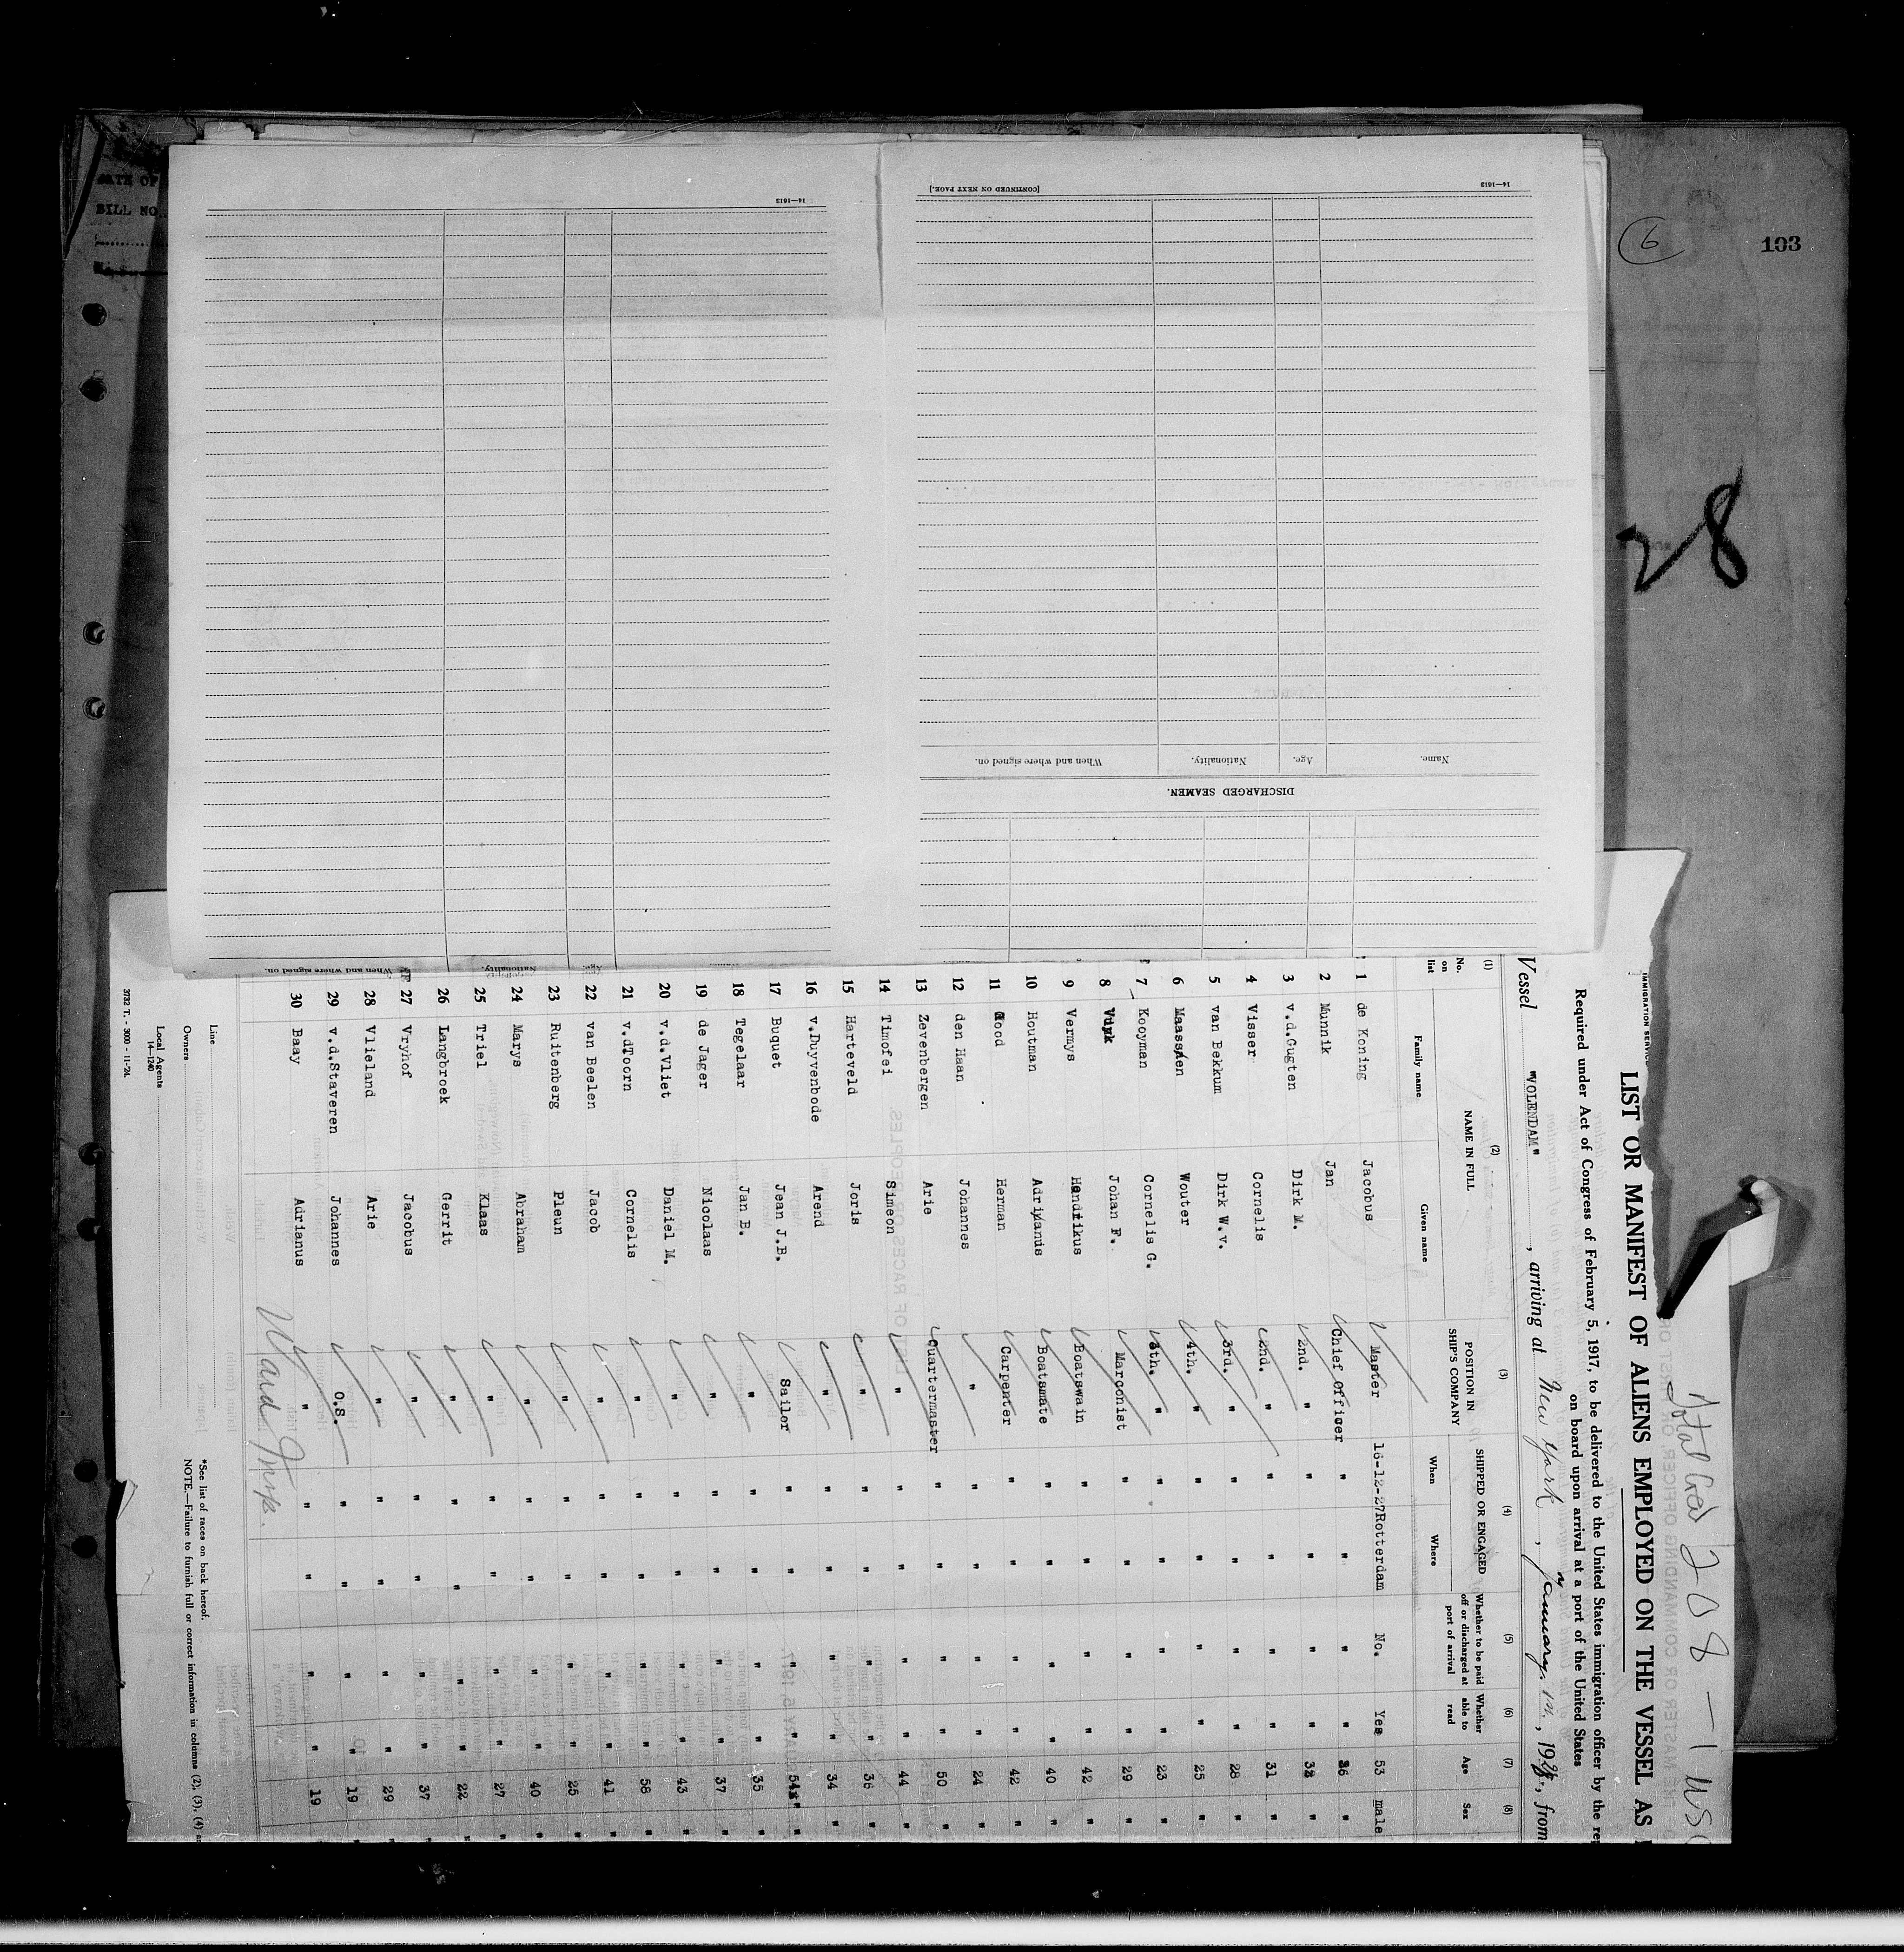 103
6
28
ATE OF
BILL NO.
14—1613
[CONTINUED ON NEXT PAGE.]
14—1613
DISCHARGED SEAMEN.
Name. Age. Nationality. When and where signed on.
Nationality. When and where signed on.
Total Crew 208 — 1 US
IMMIGRATION SERVICE
LIST OR MANIFEST OF ALIENS EMPLOYED ON THE VESSEL AS
Required under Act of Congress of February 5, 1917, to be delivered to the United States immigration officer by the
on board upon arrival at a port of the United States
Vessel "VOLENDAM", arriving at New York, January, 19, from
(1) (2) (3) (4) (5) (6) (7) (8)
No. on list NAME IN FULL POSITION IN SHIP'S COMPANY SHIPPED OR ENGAGED Whether to be paid off or discharged at port of arrival Whether able to read Age Sex
Family name Given name When Where
1 de Koning Jacobus Master 16-12-27 Rotterdam No. Yes 53 male
2 Munnik Jan Chief Officer " " " " 36 "
3 v.d.Gugten Dirk M. 2nd. " " " " " "
4 Visser Cornelis 2nd. " " " " " 31 "
5 van Bekkum Dirk W.v. 3rd. " " " " " 28 "
6 Maassen Wouter 4th. " " " " " 25 "
7 Kooyman Cornelis G. " " " " " 23 "
8 Johan F. Marconist " " " " 29 "
9 Vermys Hendrikus Boatswain " " " " 42 "
10 Houtman Adrianus Boatsmate " " " " 40 "
11 Herman Carpenter " " " " 42 "
12 den Haan Johannes " " " " " 24 "
13 Zevenbergen Arie Quartermaster " " " " 50 "
14 Timofei Simeon " " " " " 44 "
15 Harteveld Joris " " " " " 36 "
16 v.Duyvenbode Arend " " " " " 34 "
17 Buquet Jean J.B. Sailor " " " " 54 "
18 Tegelaar Jan B. " " " " " 35 "
19 de Jager Nicolaas " " " " " 37 "
20 v.d.Vliet Daniel M. " " " " " 43 "
21 v.dToorn Cornelis " " " " " 58 "
22 van Beelen Jacob " " " " " 41 "
23 Ruitenberg Pleun " " " " " 25 "
24 Marys Abraham " " " " " 40 "
25 Triel Klaas " " " " " 27 "
26 Langbroek Gerrit " " " " " 22 "
27 Vryhof Jacobus " " " " " 37
28 Vlieland Arie " " " " " 29
29 v.d.Staveren Johannes O.S. " " " " 19
30 Baay Adrianus " " " " " 19
Line
Owners
Local Agents
14—1240
3732 T. - 3000 - 11-'24.
*See list of races on back hereof.
NOTE.—Failure to furnish full or correct information in columns (2), (3), (4)